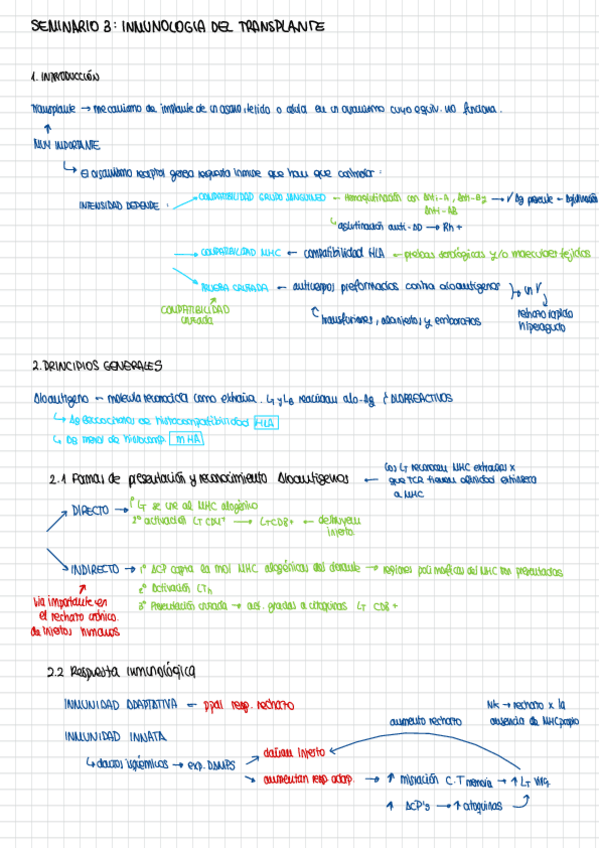 SEMINARIO 3: INMUNOLOGIA DEL TRANSPLANTE
1. INTRODUCCIÓN
Transplante → mecanismo de implante de un órgano, tejido o célula en un organismo cuyo equiv. no funciona.
MUY IMPORTANTE
El organismo receptor genera respuesta inmune que hay que controlar:
INTENSIDAD DEPENDE:
COMPATIBILIDAD GRUPO SANGUINEO ← Hemoaglutinación con Anti-A, Anti-B, → √ Ag presente → Aglutinación
Anti-AB
aglutinación anti-DD → Rh +
COMPATIBILIDAD MHC ← compatibilidad HLA ← pruebas serológicas y/o moleculares tejidos
PRUEBA CRUZADA ← anticuerpos preformados contra aloantígenos
COMPATIBILIDAD cruzada
transfusiones, abortos y embarazos
rechazo rápido
hiperagudo
2. PRINCIPIOS GENERALES
Aloantígeno ← molécula reconocida como extraña. LT y LB reaccionan alo-Ag ALORREACTIVOS
↳ Ag de histocompatibilidad HLA
↳ Ag menor de histocomp. mHA
2.1 Formas de presentación y reconocimiento Aloantígenos
Los LT reconocen MHC extraños x
que TCR tienen afinidad extrínseca
a MHC
DIRECTO → 1º LT se une al MHC alogénico
2º activación LT CD4+ → LTCD8+ ← destruyen
injerto.
INDIRECTO → 1º ACP capta la mol MHC alogénicas del donante → regiones polimorficas del MHC son presentadas
2º Activación LTh
3º Presentación cruzada → act. gracias a citoquinas LT CD8+
Via importante en
el rechazo crónico
de injertos humanos
2.2 Respuesta inmunológica
INMUNIDAD ADAPTATIVA ← ppal resp. rechazo
NK → rechazo x la
ausencia de MHC propio
aumento rechazo
INMUNIDAD INNATA
↳ daños isquémicos → exp. DAMPS
dañan injerto
aumentan resp adap. → ↑ migración C.T memoria → ↑ LT
↑ ACP's → ↑ citoquinas